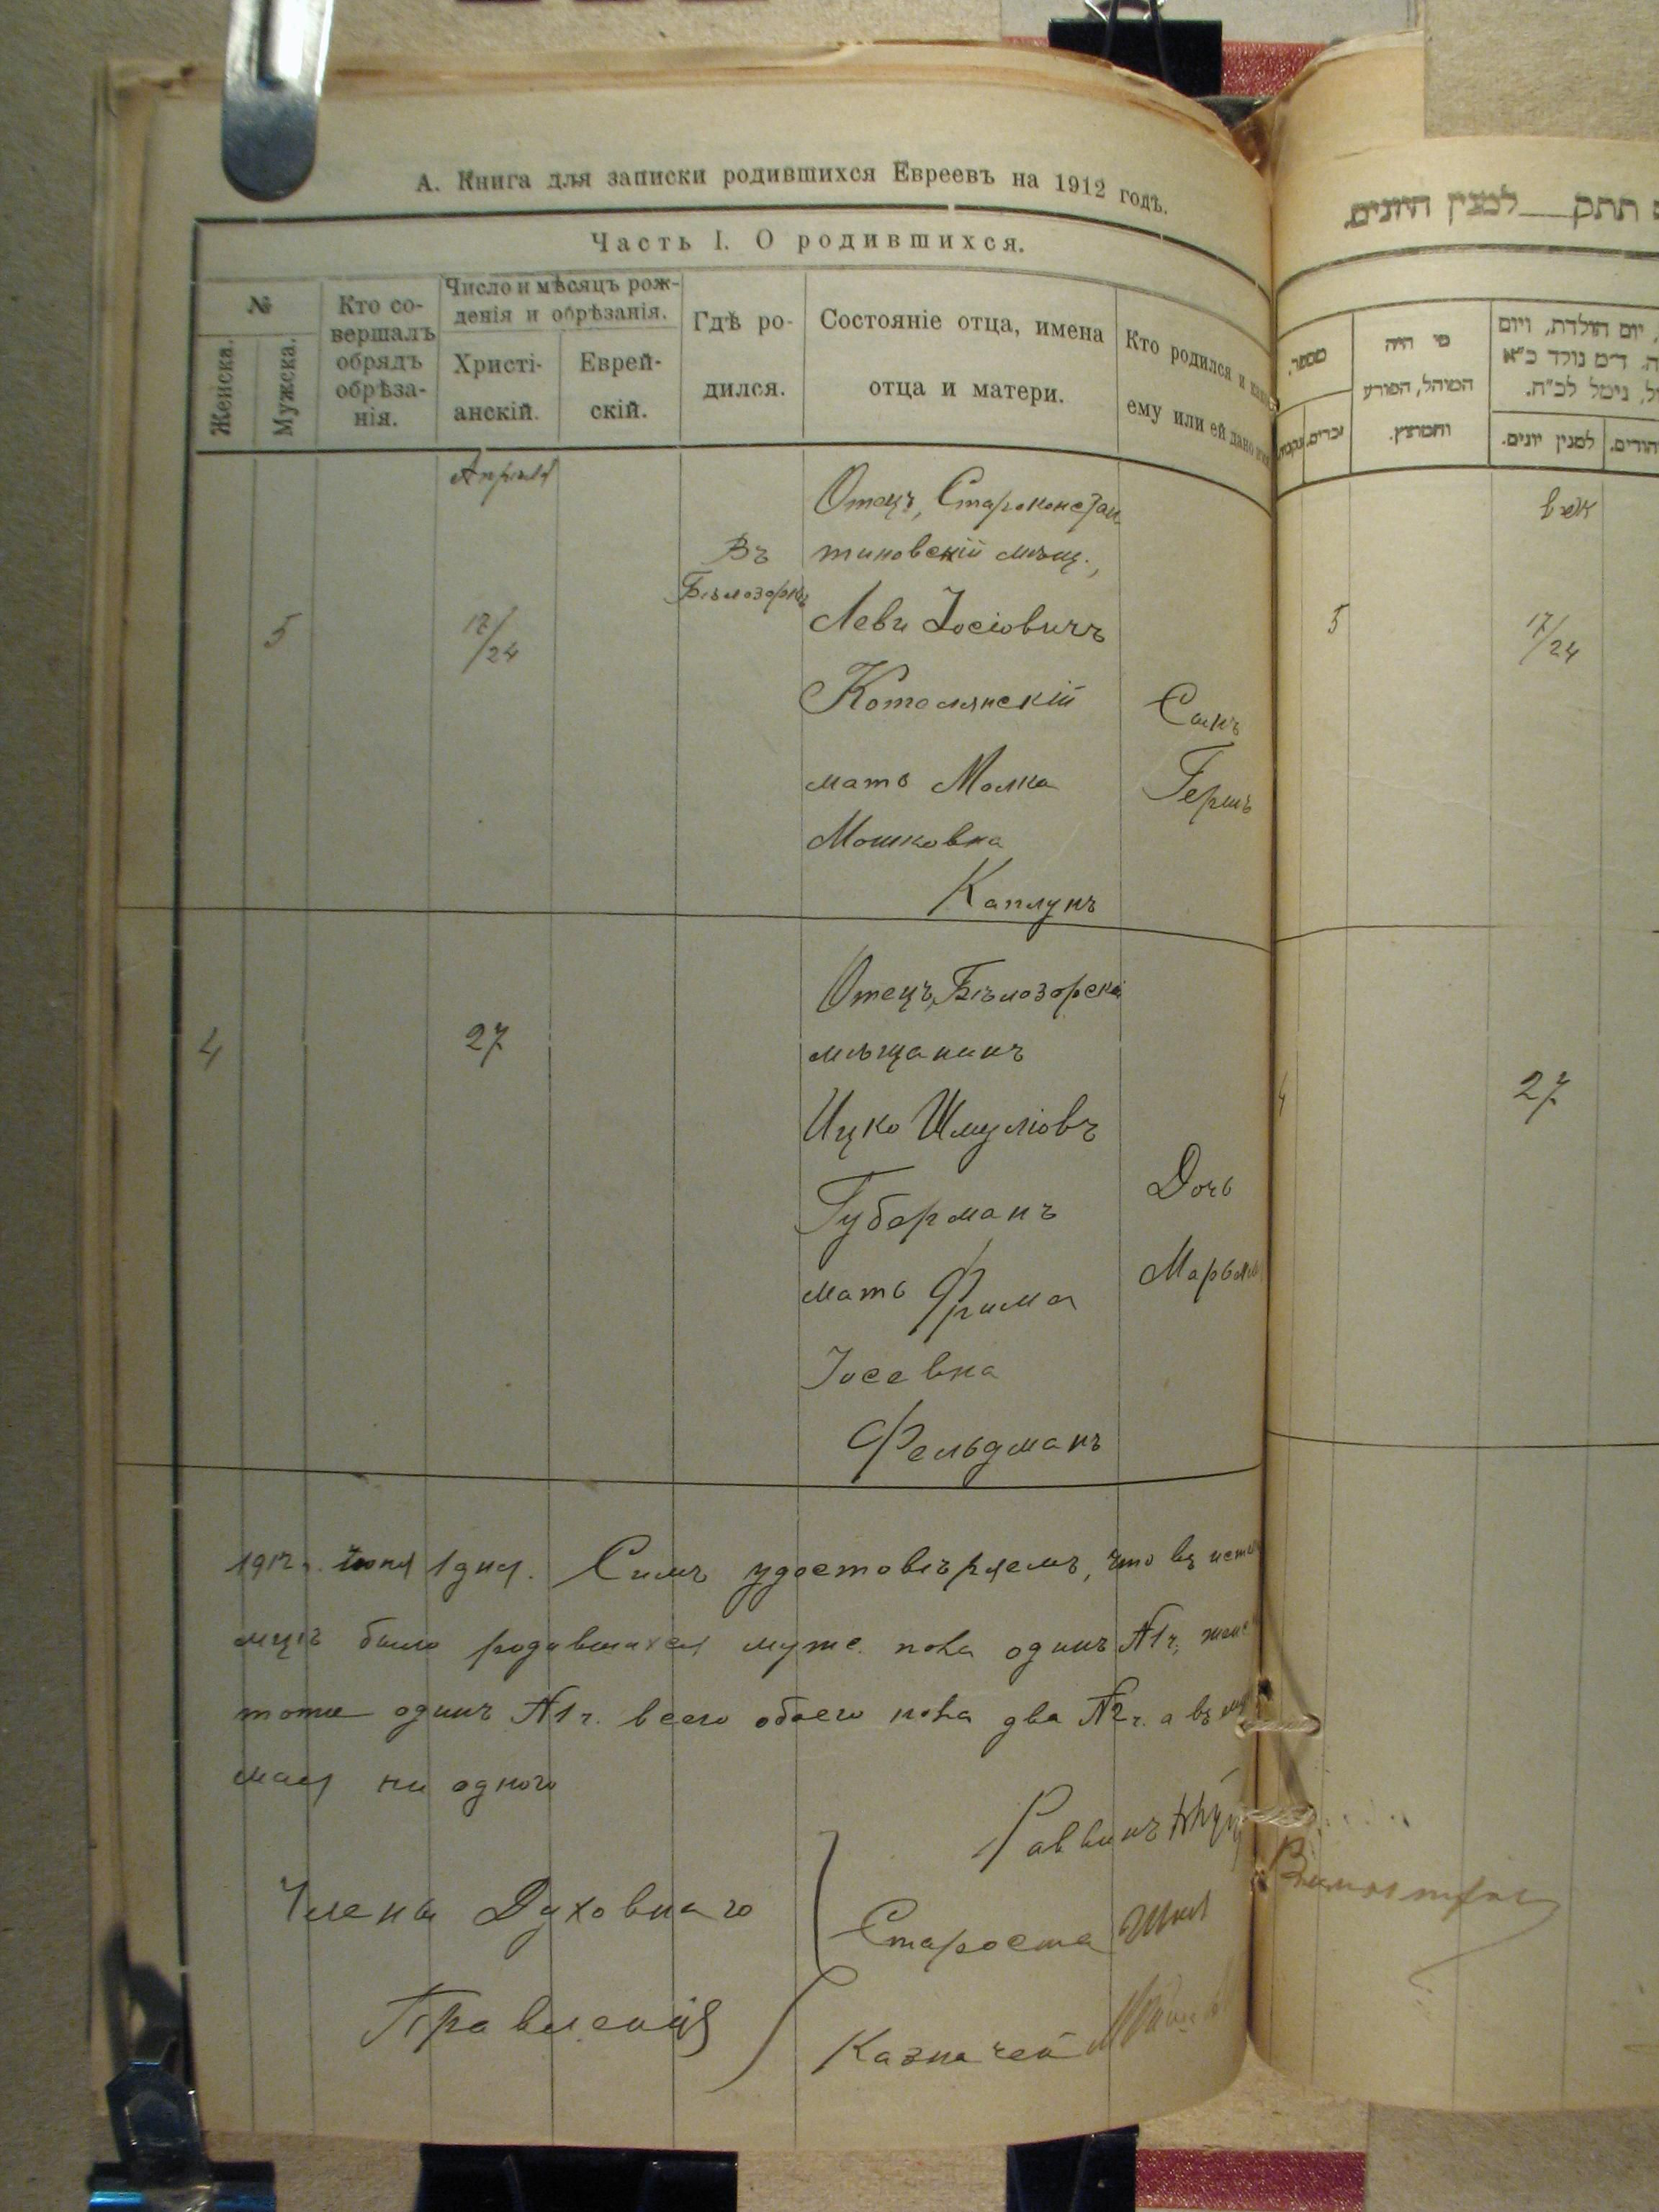 А. Книга для записки родившихся Евреевъ на 1912 годъ.
Часть I. О родившихся.
№
Женска.
Мужска.
Кто со-
вершалъ
обрядъ
обрѣза-
нія.
Число и мѣсяцъ рож-
денія и обрѣзанія.
Христі-
анскій.
Еврей-
скій.
Гдѣ ро-
дился.
Состояніе отца, имена
отца и матери.
Кто родился и
ему или ей дано
Апрѣля
5
17/24
Въ
Бѣлозоркѣ
Отецъ, Старконстан
тиновскій мѣщ.,
Леви Іосіовичъ
Котелянскій
мать Малка
Мошковна
Каплунъ
Сынъ
Гершъ
4
27
Отецъ, Бѣлозорскій
мѣщанинъ
Ицко Шмуліовъ
Губерманъ
мать Фрима
Іосевна
Фельдманъ
Дочь
Марьямъ
1912 г. Іюня 1 дня. Симъ удостовѣряемъ, что въ
мцѣ было родившихся муже. пола одинъ №1 ч.
тоже одинъ №1 ч. всего обоего пола два №2 ч. а въ
маѣ ни одного
Члены Духовнаго
Правленія
Раввинъ
Староста
Казначей
תתק לסנין היונים.
מספר.
זכרים.
מי היה
המוהל, הפורע
והמוצץ.
יום הולדת, ויום
ד״מ נולד כ״א
נימל לכ״ח.
למנין יונים.
5
17/24
4
27